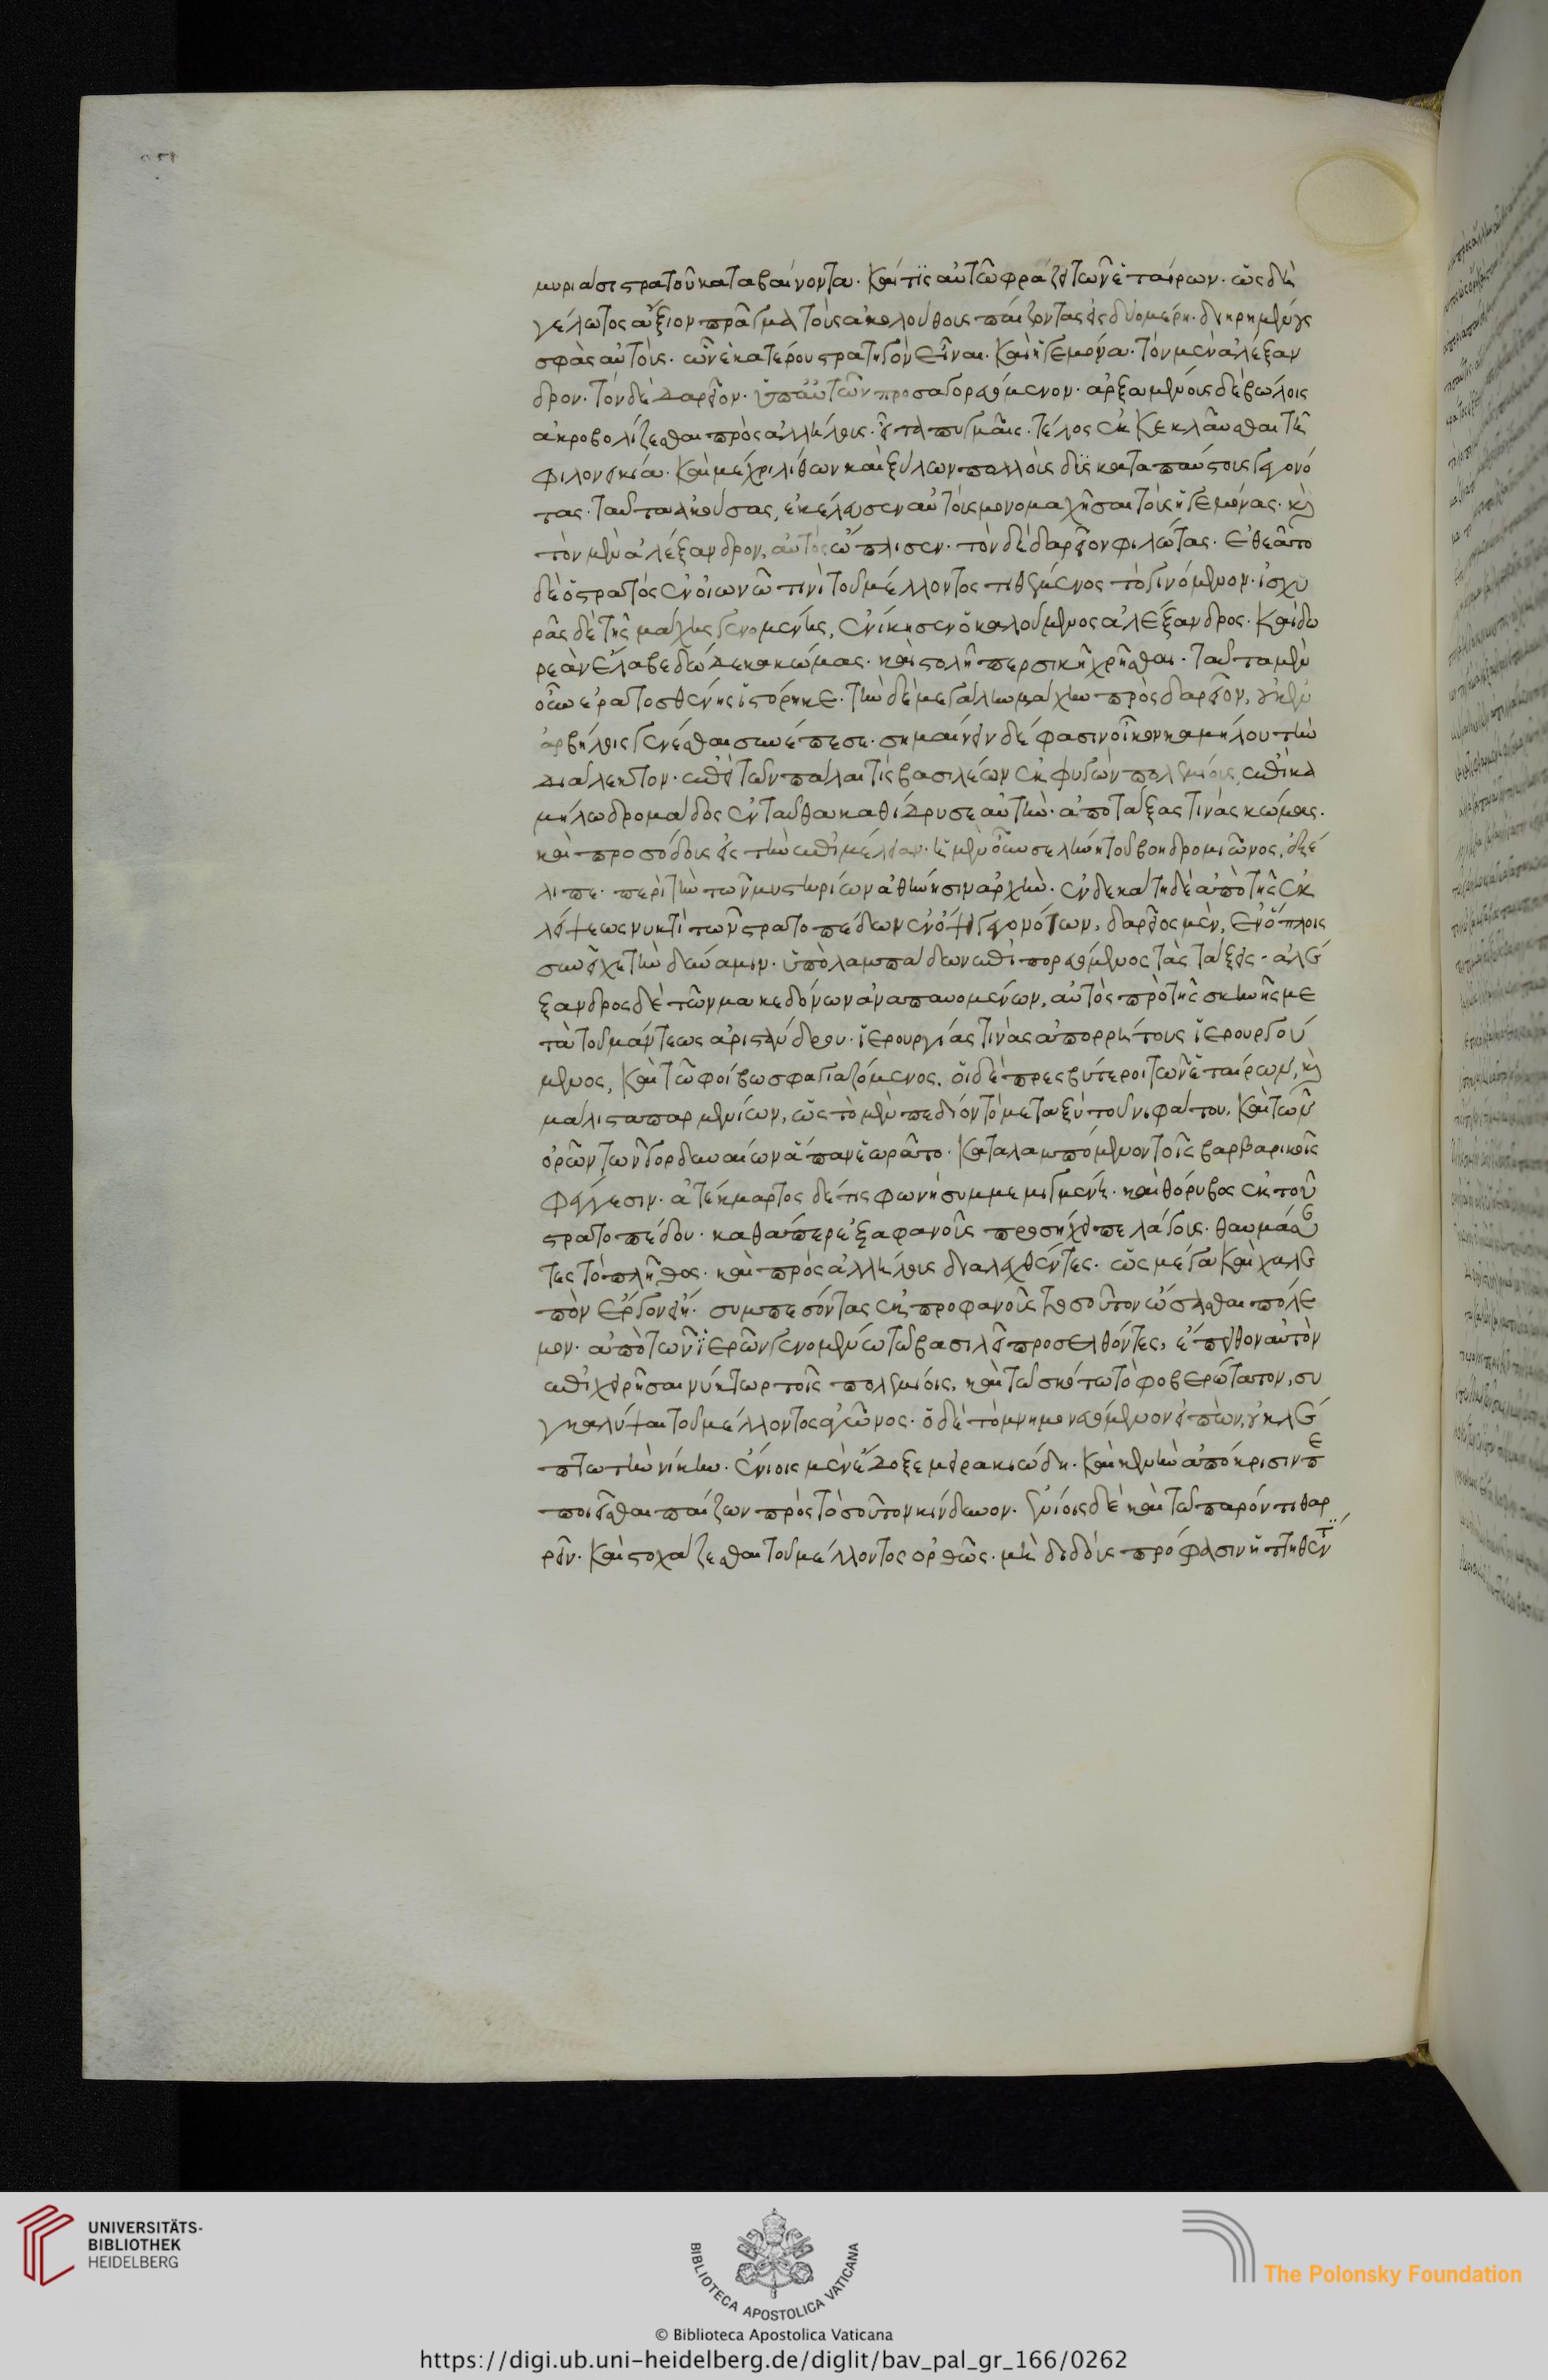 μυριάσι στρατοῦ καταβαίνοντα. καί τις αὐτῶ φράζει τῶν ἑταίρων. ὡς δὴ
γέλωτος ἄξιον πρᾶγμα τοὺς ἀκολούθους παίζοντας εἰς δύο μέρη. διηρημένους
σφὰς αὐτοὺς. ὧν ἑκατέρου στρατηγὸν εἶναι. καὶ ἡγεμόνα. τὸν μὲν ἀλέξαν
δρον. τὸν δὲ δαρεῖον. ὑπ' αὐτῶν προσαγορευόμενον. ἀρξαμένους δὲ βώλοις
ἀκροβολίζεσθαι πρὸς ἀλλήλους. εἶτα πυγμαῖς. τέλος ἐκκεκλαῦσθαι τῆ
φιλονεικία. καὶ μέχρι λίθων καὶ ξύλων πολλοὺς δυσκαταπαύστους γεγονό
τας. ταῦτα ἀκούσας, ἐκέλευσεν αὐτοὺς μονομαχῆσαι τοὺς ἡγεμόνας. καὶ
τὸν μὲν ἀλέξανδρον, αὐτὸς ὥπλισεν. τὸν δὲ δαρεῖον φιλώτας. ἐθεᾶτο
δὲ ὁ στρατός ἐν οἰωνῶ τινὶ τοῦ μέλλοντος τιθέμενος τὸ γινόμενον. ἰσχυ
ρᾶς δὲ τῆς μάχης γενομένης, ἐνίκησεν ὁ καλούμενος ἀλέξανδρος. καὶ δω
ρεὰν ἔλαβε δώδεκα κώμας. καὶ στολῆ περσικῆ χρῆσθαι. ταῦτα μὲν
οὖν ἐρατοσθένης ἱστόρηκε. τὴν δὲ μεγάλην μάχην πρὸς δαρεῖον, οὐκ ἐν
ἀρβήλοις γενέσθαι συνέπεσε. σημαίνειν δέ φασιν οἶκον καμήλου τὴν
διάλεκτον. ἐπεὶ τῶν πάλαι τὶς βασιλέων ἐκφυγὼν πολεμίους ἐπὶ κα
μήλω δρομάδος ἐνταῦθα καθίδρυσε αὐτὴν. ἀποτάξας τινὰς κώμας.
καὶ προσόδους εἰς τὴν ἐπιμέλειαν. ἡ μὲν οὖν σελήνη τοῦ βοηδρομιῶνος, ἐξέ
λιπε. περὶ τὴν τῶν μυστηρίων ἀθήνησιν ἀρχὴν. ἑνδεκάτη δὲ ἀπὸ τῆς ἐκ
λείψεως νυκτὶ τῶν στρατοπέδων ἐν ὄψει γεγονότων, δαρεῖος μὲν, ἐν ὅπλοις
συνεῖχε τὴν δύναμιν. ὑπὸ λαμπάδων ἐπιπορευόμενος τὰς τάξεις. ἀλέ
ξανδρος δὲ τῶν μακεδόνων ἀναπαυομένων, αὐτὸς πρὸ τῆς σκηνῆς με
τὰ τοῦ μάντεως ἀριστάνδρου. ἱερουργίας τινὰς ἀπορρήτους ἱερουργού
μενος, καὶ τῶ φοίβω σφαγιαζόμενος. οἱ δὲ πρεσβύτεροι τῶν ἑταίρων, καὶ
μάλιστα παρμενίων, ὡς τὸ μὲν πεδίον τὸ μεταξὺ τοῦ νιφάτου, καὶ τῶν
ὀρῶν τῶν γορδυαίων ἅπαν ἑωρᾶτο. καταλαμπόμενον τοῖς βαρβαρικοῖς
φέγγεσιν. ἀτέκμαρτος δέ τις φωνὴ συμμεμιγμένη. καὶ θόρυβος ἐκ τοῦ
στρατοπέδου. καθάπερ ἐξ ἀφανοῦς προσήχει πελάγους. θαυμάσαν
τες τὸ πλῆθος. καὶ πρὸς ἀλλήλους διαλεχθέντες. ὡς μέγα καὶ χαλε
πὸν ἔργον εἴη. συμπεσόντας ἐκ προφανοῦς τοσοῦτον ὤσασθαι πόλε
μον. ἀπὸ τῶν ἱερῶν γενομένω τῶ βασιλεῖ προσελθόντες, ἔπειθον αὐτὸν
ἐπιχειρῆσαι νύκτωρ τοῖς πολεμίοις, καὶ τῶ σκότω τὸ φοβερώτατον, συ
γκαλύψαι τοῦ μέλλοντος ἀγῶνος. ὁ δὲ τὸ μνημονευόμενον εἰπὼν, οὐ κλέ
πτω τὴν νίκην. ἐνίοις μὲν ἔδοξε μειρακιώδη. καὶ κενὴν ἀπόκρισιν πε
ποιεῖσθαι παίζων πρὸς τοσοῦτον κίνδυνον. ἐνίοις δὲ καὶ τῶ παρόντι θαρ
ρεῖν. καὶ στοχάζεσθαι τοῦ μέλλοντος ὀρθῶς. μὴ διδοὺς πρόφασιν ἡττηθέντι
UNIVERSITÄTS-
BIBLIOTHEK
HEIDELBERG
BIBLIOTECA APOSTOLICA VATICANA
The Polonsky Foundation
© Biblioteca Apostolica Vaticana
https://digi.ub.uni-heidelberg.de/diglit/bav_pal_gr_166/0262